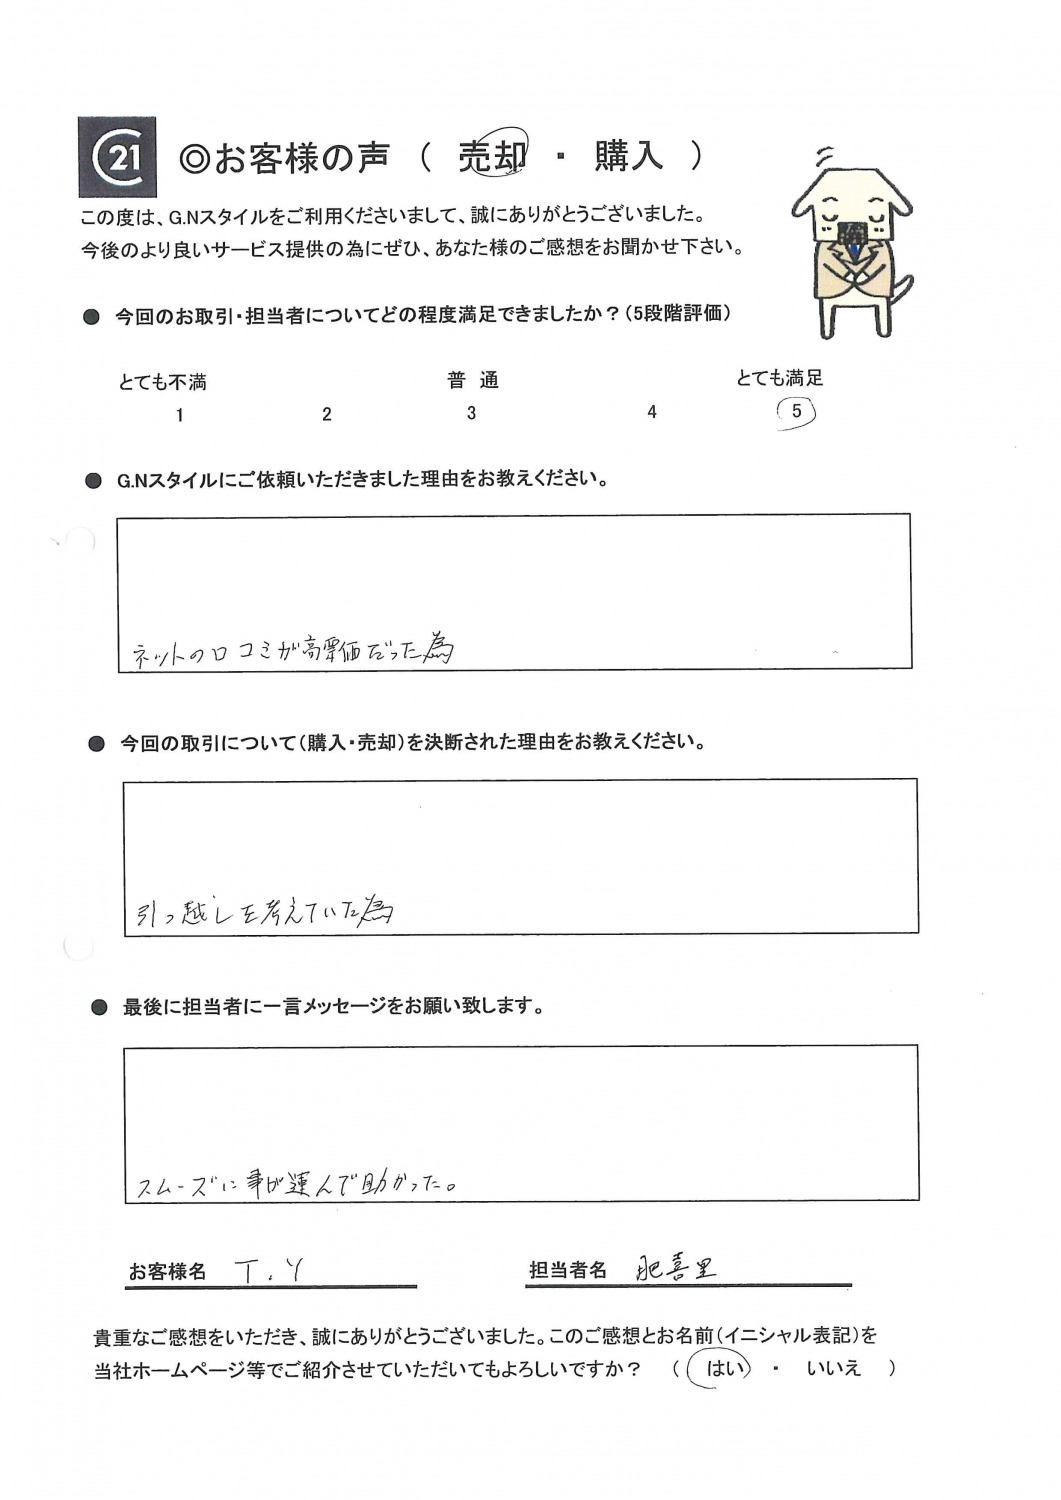 C21
◎お客様の声 （ 売却 ・ 購入 ）
この度は、G.Nスタイルをご利用くださいまして、誠にありがとうございました。
今後のより良いサービス提供の為にぜひ、あなた様のご感想をお聞かせ下さい。
● 今回のお取引・担当者についてどの程度満足できましたか？（5段階評価）
とても不満 普 通 とても満足
1 2 3 4 5
● G.Nスタイルにご依頼いただきました理由をお教えください。
ネットの口コミが高評価だった為
● 今回の取引について（購入・売却）を決断された理由をお教えください。
引っ越しを考えていた為
● 最後に担当者に一言メッセージをお願い致します。
スムーズに事が運んで助かった。
お客様名 T.Y 担当者名 肥喜里
貴重なご感想をいただき、誠にありがとうございました。このご感想とお名前（イニシャル表記）を
当社ホームページ等でご紹介させていただいてもよろしいですか？ （ はい ・ いいえ ）